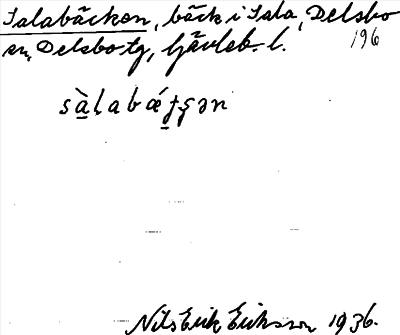 Salabäcken, bäck i Sala, Delsbo
sn, Delsbo tg, Gävleb. l.
196
sàḷabǽtʂən
Nils Erik Eriksson 1936.